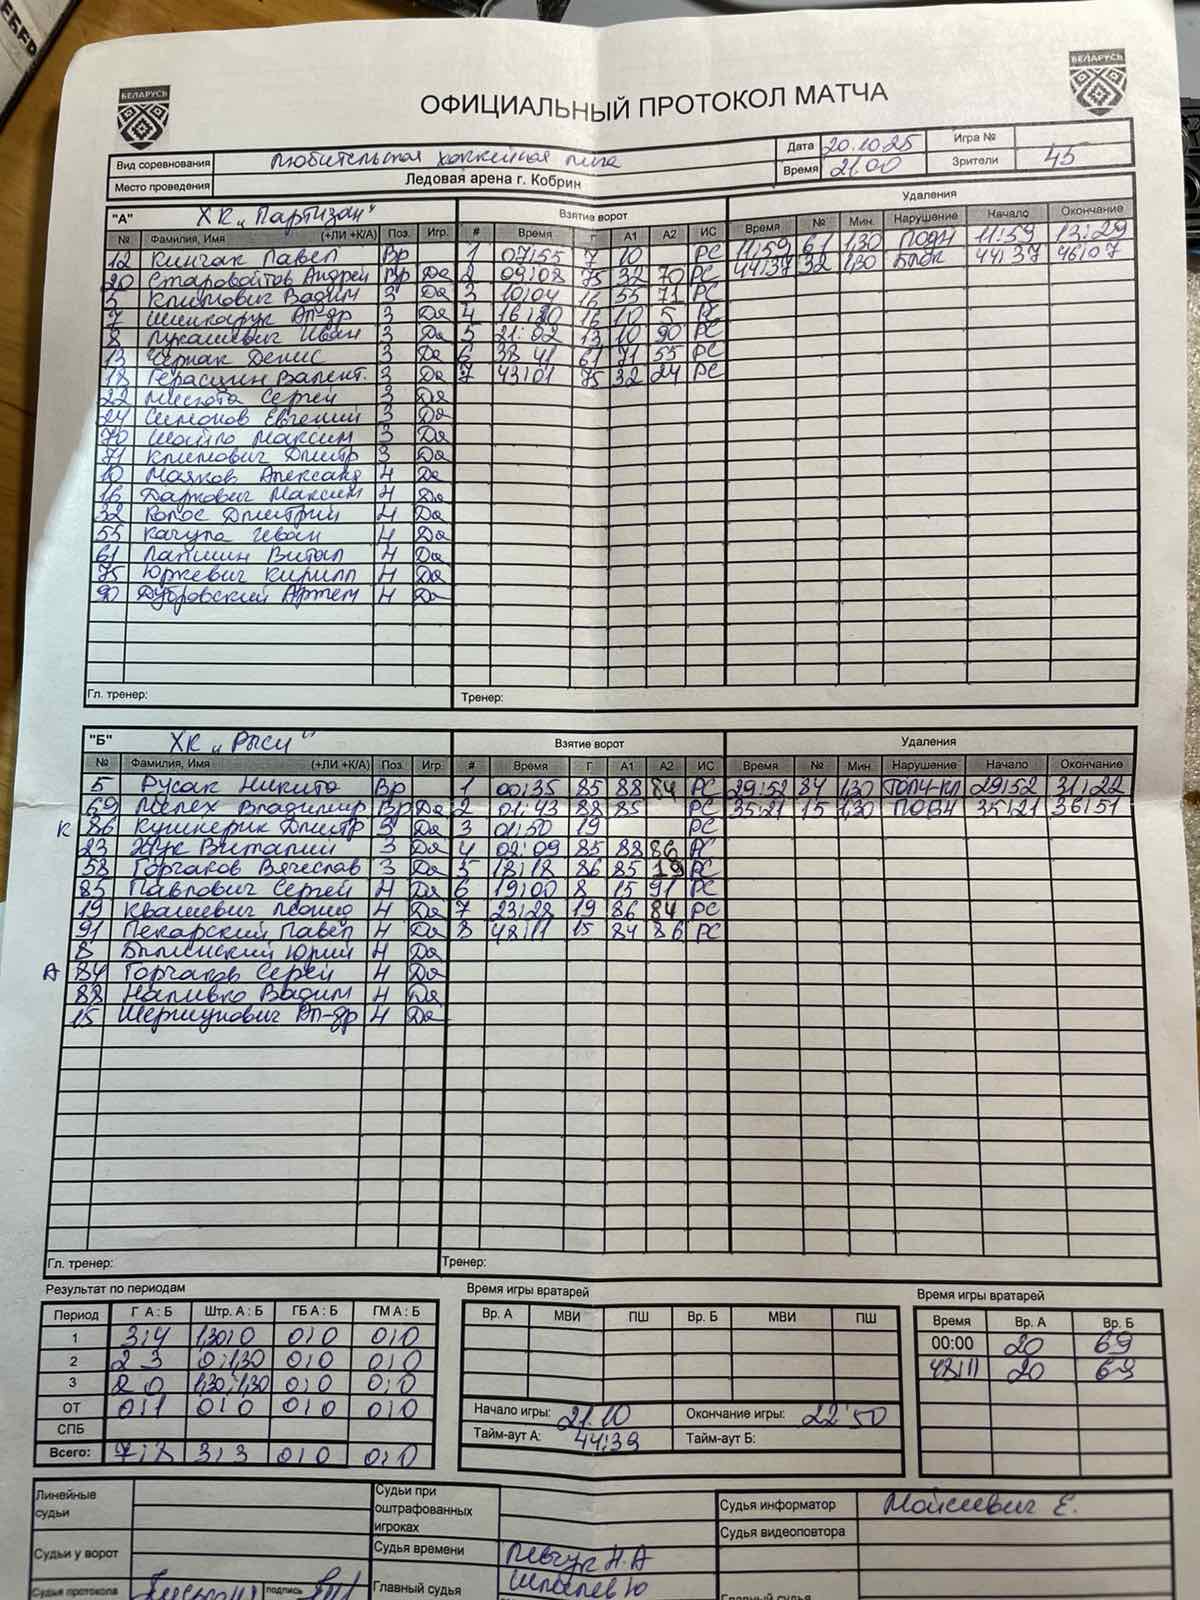 БЕЛАРУСЬ БЕЛАРУСЬ
ОФИЦИАЛЬНЫЙ ПРОТОКОЛ МАТЧА
Вид соревнования Любительская хоккейная лига Дата 20.10.25 Игра №
Место проведения Ледовая арена г. Кобрин Время 21.00 Зрители 45
"А" ХК „Партизан“ Взятие ворот Удаления
№ Фамилия, Имя (+ЛИ +К/А) Поз. Игр. # Время Г А1 А2 ИС Время № Мин. Нарушение Начало Окончание
12 Кинчак Павел Вр 1 07:55 7 10 РС 11:59 61 1,30 ПОДН 11:59 13:29
20 Старовойтов Андрей Вр Да 2 09:08 75 32 70 РС 44:37 32 1,30 Блок 44:37 46:07
5 Климович Вадим З Да 3 10:04 16 55 71 РС
7 Шинкарук Ал-др З Да 4 16:20 16 10 5 РС
8 Лукашевич Иван З Да 5 21:02 13 10 90 РС
13 Черпак Денис З Да 6 38 41 61 71 55 РС
18 Герасцин Валент. З Да 7 43:01 75 32 24 РС
22 Мисюта Сергей З Да
24 Симонов Евгений З Да
70 Шойло Максим З Да
71 Климович Дмитр З Да
10 Маяков Александ Н Да
16 Даркович Максим Н Да
32 Колос Дмитрий Н Да
55 Качула Иван Н Да
61 Лапшин Витал Н Да
75 Юркевич Кирилл Н Да
90 Дубровский Артем Н Да
Гл. тренер: Тренер:
"Б" ХК „Рыси“ Взятие ворот Удаления
№ Фамилия, Имя (+ЛИ +К/А) Поз. Игр. # Время Г А1 А2 ИС Время № Мин. Нарушение Начало Окончание
5 Русак Никита Вр 1 00:35 85 88 84 РС 29:52 84 1,30 ТОЛЧ-КЛ 29:52 31:22
69 Мелех Владимир Вр Да 2 01:43 88 85 РС 35:21 15 1,30 ПОДН 35:21 36:51
К 86 Кушнерик Дмитр З Да 3 01:50 19 РС
23 Жук Виталий З Да 4 02:09 85 88 86 РС
58 Горчаков Вячеслав З Да 5 18:18 86 85 19 РС
85 Павлович Сергей Н Да 6 19:00 8 15 91 РС
19 Квашевич Леонид Н Да 7 23:28 19 86 84 РС
91 Пекарский Павел Н Да 8 48:11 15 84 86 РС
8 Юрий Н Да
А 84 Горчаков Сергей Н Да
88 Наливко Вадим Н Да
15 Шершунович Вл-др Н Да
Гл. тренер: Тренер:
Результат по периодам Время игры вратарей Время игры вратарей
Период Г А : Б Штр. А : Б ГБ А : Б ГМ А : Б Вр. А МВИ ПШ Вр. Б МВИ ПШ Время Вр. А Вр. Б
1 3:4 1,30:0 0:0 0:0 00:00 20 69
2 2 3 0:1,30 0:0 0:0 48:11 20 69
3 2 0 1,30:1,30 0:0 0:0
ОТ 0:1 0:0 0:0 0:0 Начало игры: 21.10 Окончание игры: 22:50
СПБ Тайм-аут А: 44:39 Тайм-аут Б:
Всего: 7:8 3:3 0:0 0:0
Линейные судьи Судьи при оштрафованных игроках Судья информатор Мойсиевич Е.
Судья видеоповтора
Судьи у ворот Судья времени Левчук Н.А
Судья протокола подпись Главный судья